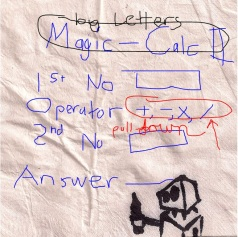 big Letters
Magic - Calc II
1st No
Operator +, -, x, /
pull down
2nd No
Answer